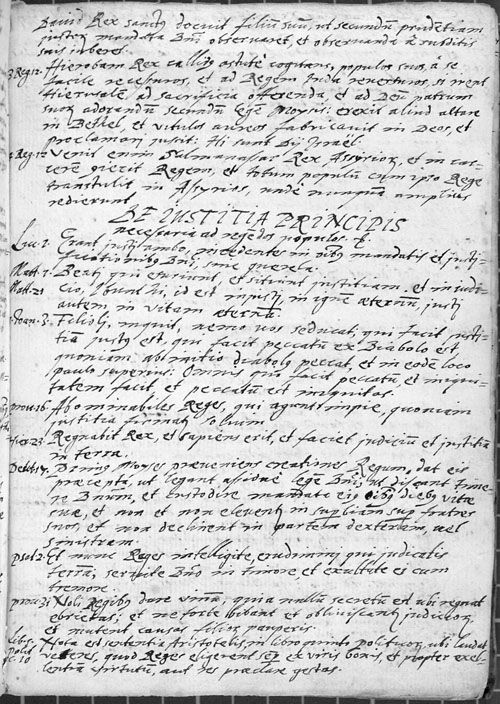 David Rex sanctus docuit filiū suū, ut secundū prudētiam
justor mandata Dnī observaret, et observanda à subditis
suis iuberet.
3. Reg. 12. Hieroboam Rex callido astutè cogitans, populos suos, à se
facile recessuros, et ad Regem Juda reversuros, si irent
Hierusalē, ad sacrificia offerenda et ad Deū patrum
suor adorandū secundū legē Moysis: erexit aliud altare
in Bethel, et vitulos aureos fabricavit in Deos, et
proclamari jussit: Hi sunt Dij Israel.
Reg. 17 Venit enim Salmanasar Rex Assyrior, et in car-
cere Regem, et totum populū cum ipso Rege
transtulit in Assyrios, unde nunquā amplius
redierunt.
DE IUSTITIA PRINCIPIS
necessaria ad regēdos populos.
Luc. 1. Erant justi ambo, incedentes in oībus mandatis et justi-
ficationibus Dnī, sine querela.
Matt. 5. Beati qui esuriunt et sitiunt justitiam. et in iudi-
Matt. 25 cio, Ibunt hi, id est injusti, in ignē aeternū, justi
autem in vitam aeternā.
1. Joan. 3. Filioli, inquit, nemo vos seducat; qui facit justi-
tiā justus est, qui facit peccatū ex Diabolo est,
quoniam ab initio diabolus peccat, et in eodē loco
paulo superius: Omnis qui facit peccatū, et iniqui-
tatem facit et peccatū est iniquitas.
prov. 16. Abominabiles Reges, qui agunt impie, quoniam
justitia firmatur solium.
Hier. 23. Regnabit Rex, et sapiens erit, et faciet judiciū et justitiā
in terra.
Deut. 17. Divinus Moises praeveniens creationes Regum, dat eis
praecepta, ut legant assiduè legē Dnī, ut discant time-
re Dnum, et custodire mandata eius oībus diebus vitae
suae, et non elevent in superbiam sup fratres
suos, et non declinent in partem dexteram, vel
sinistram.
psal. 2. Et nunc Reges intelligite, erudimini qui judicatis
terrā, servite Dnō in timore, et exultate ei cum
tremore.
prov. 31 Noli Regibus dare vinū, quia nullū secretū est ubi regnat
ebrietas; et ne forte bibant et obliviscantur judicior,
et mutent causas filior pauperis.
Lib. 5. Nota est sententia Aristotelis, in libro quinto politicor, ubi laudat
Polit. veteres, quod Reges eligerent ex viris bonis, et propter excel-
c. 10 lentiā virtutū, aut res praeclare gestas.